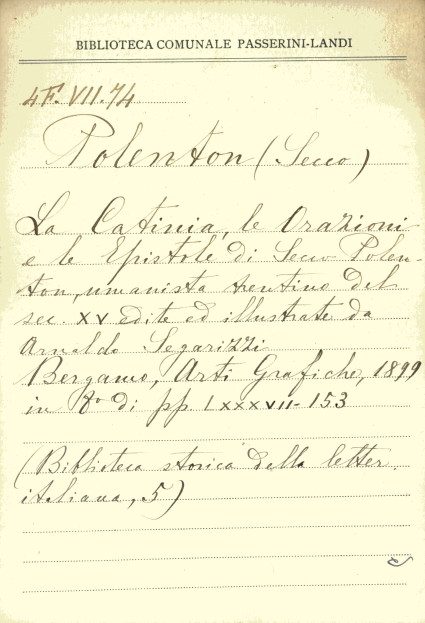 BIBLIOTECA COMUNALE PASSERINI-LANDI
4F. VII. 74
Polenton (Secco)
La Catinia, le Orazioni
e le Epistole di Secco Polen-
ton, umanista trentino del
sec. XV edite ed illustrate da
Arnaldo Segarizzi
Bergamo, Arti Grafiche, 1899
in 8º di pp. LXXXVII-153
(Biblioteca storica della letter.
italiana, 5)